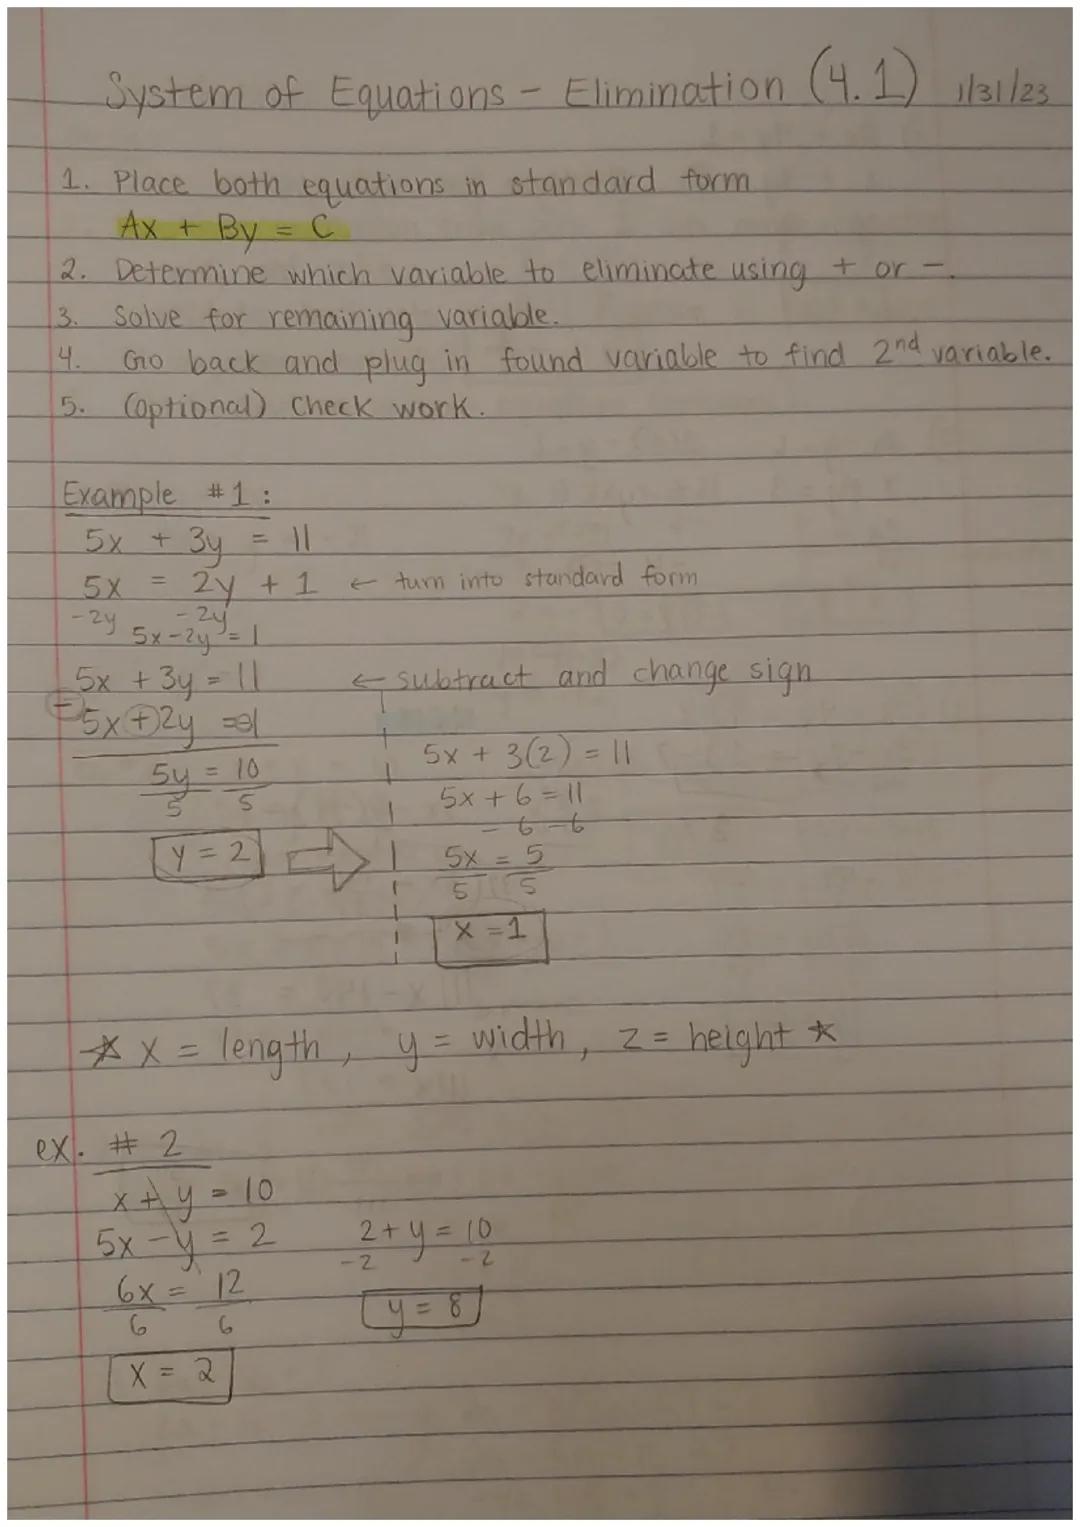 System of Equations - Elimination (4.1) 1/31/23
1. Place both equations in standard form
Ax + By = C
2. Determine which variable to eliminate using + or -.
3. Solve for remaining variable.
4. Go back and plug in found variable to find 2nd variable.
5. (optional) Check work.
Example #1:
5x + 3y = 11
5x = 2y + 1 ← turn into standard form
-2y -2y
5x - 2y = 1
5x + 3y = 11 ← subtract and change sign
- 5x + 2y = -1
5y = 10
5 5
y = 2
5x + 3(2) = 11
5x + 6 = 11
- 6 - 6
5x = 5
5 5
x = 1
* x = length, y = width, z = height *
ex. # 2
x + y = 10
5x - y = 2
6x = 12
6 6
x = 2
2 + y = 10
-2 -2
y = 8